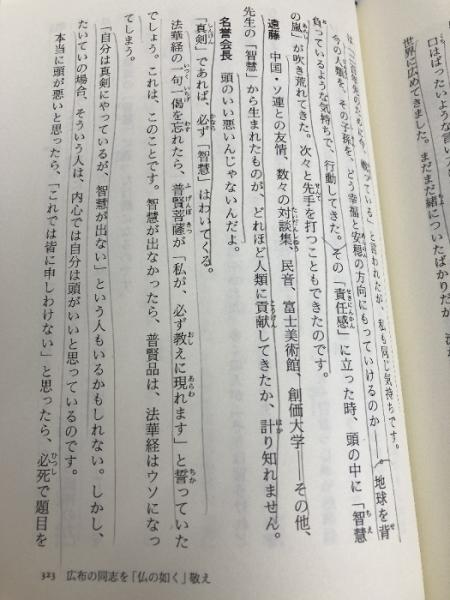 口はばったいような言い
世界に広めてきました。まだまだ緒についたばかりだが、
は「二百年先のために今、戦っている」と言われたが、私も同じ気持ちです。
今の人類を、その子孫を、どう幸福と安穏の方向にもっていけるのか──。地球を背
負っているような気持ちで、行動してきた。その「責任感」に立った時、頭の中に「智慧
の嵐」が吹き荒れてきた。次々と先手を打つこともできたのです。
遠藤 中国・ソ連との友情、数々の対談集、民音、富士美術館、創価大学──その他、
先生の「智慧」から生まれたものが、どれほど人類に貢献してきたか、計り知れません。
名誉会長 頭のいい悪いんじゃないんだよ。
「真剣」であれば、必ず「智慧」はわいてくる。
法華経の一句一偈を忘れたら、普賢菩薩が「私が、必ず教えに現れます」と誓っていた
でしょう。これは、このことです。智慧が出なかったら、普賢品は、法華経はウソになっ
てしまう。
「自分は真剣にやっているが、智慧が出ない」という人もいるかもしれない。しかし、
たいていの場合、そういう人は、内心では自分は頭がいいと思っているのです。
本当に頭が悪いと思ったら、「これでは皆に申しわけない」と思ったら、必死で題目を
323 広布の同志を「仏の如く」敬え